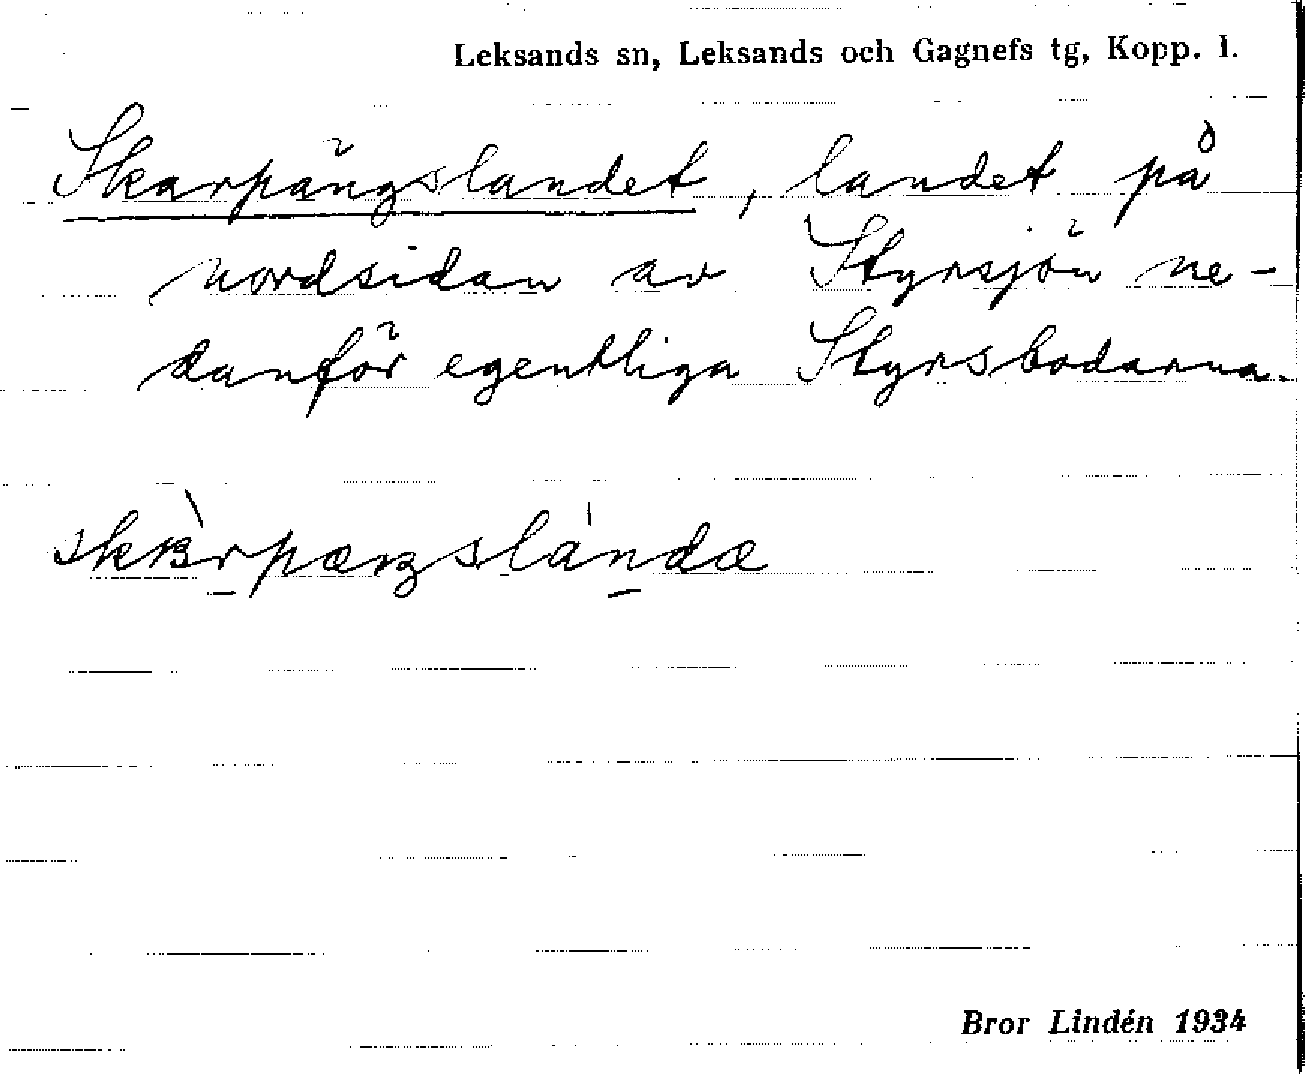 Leksands sn, Leksands och Gagnefs tg, Kopp. l.
Skarpängslandet, landet på
nordsidan av Styrsjön ne-
danför egentliga Styrsbodarna.
Bror Lindén 1934